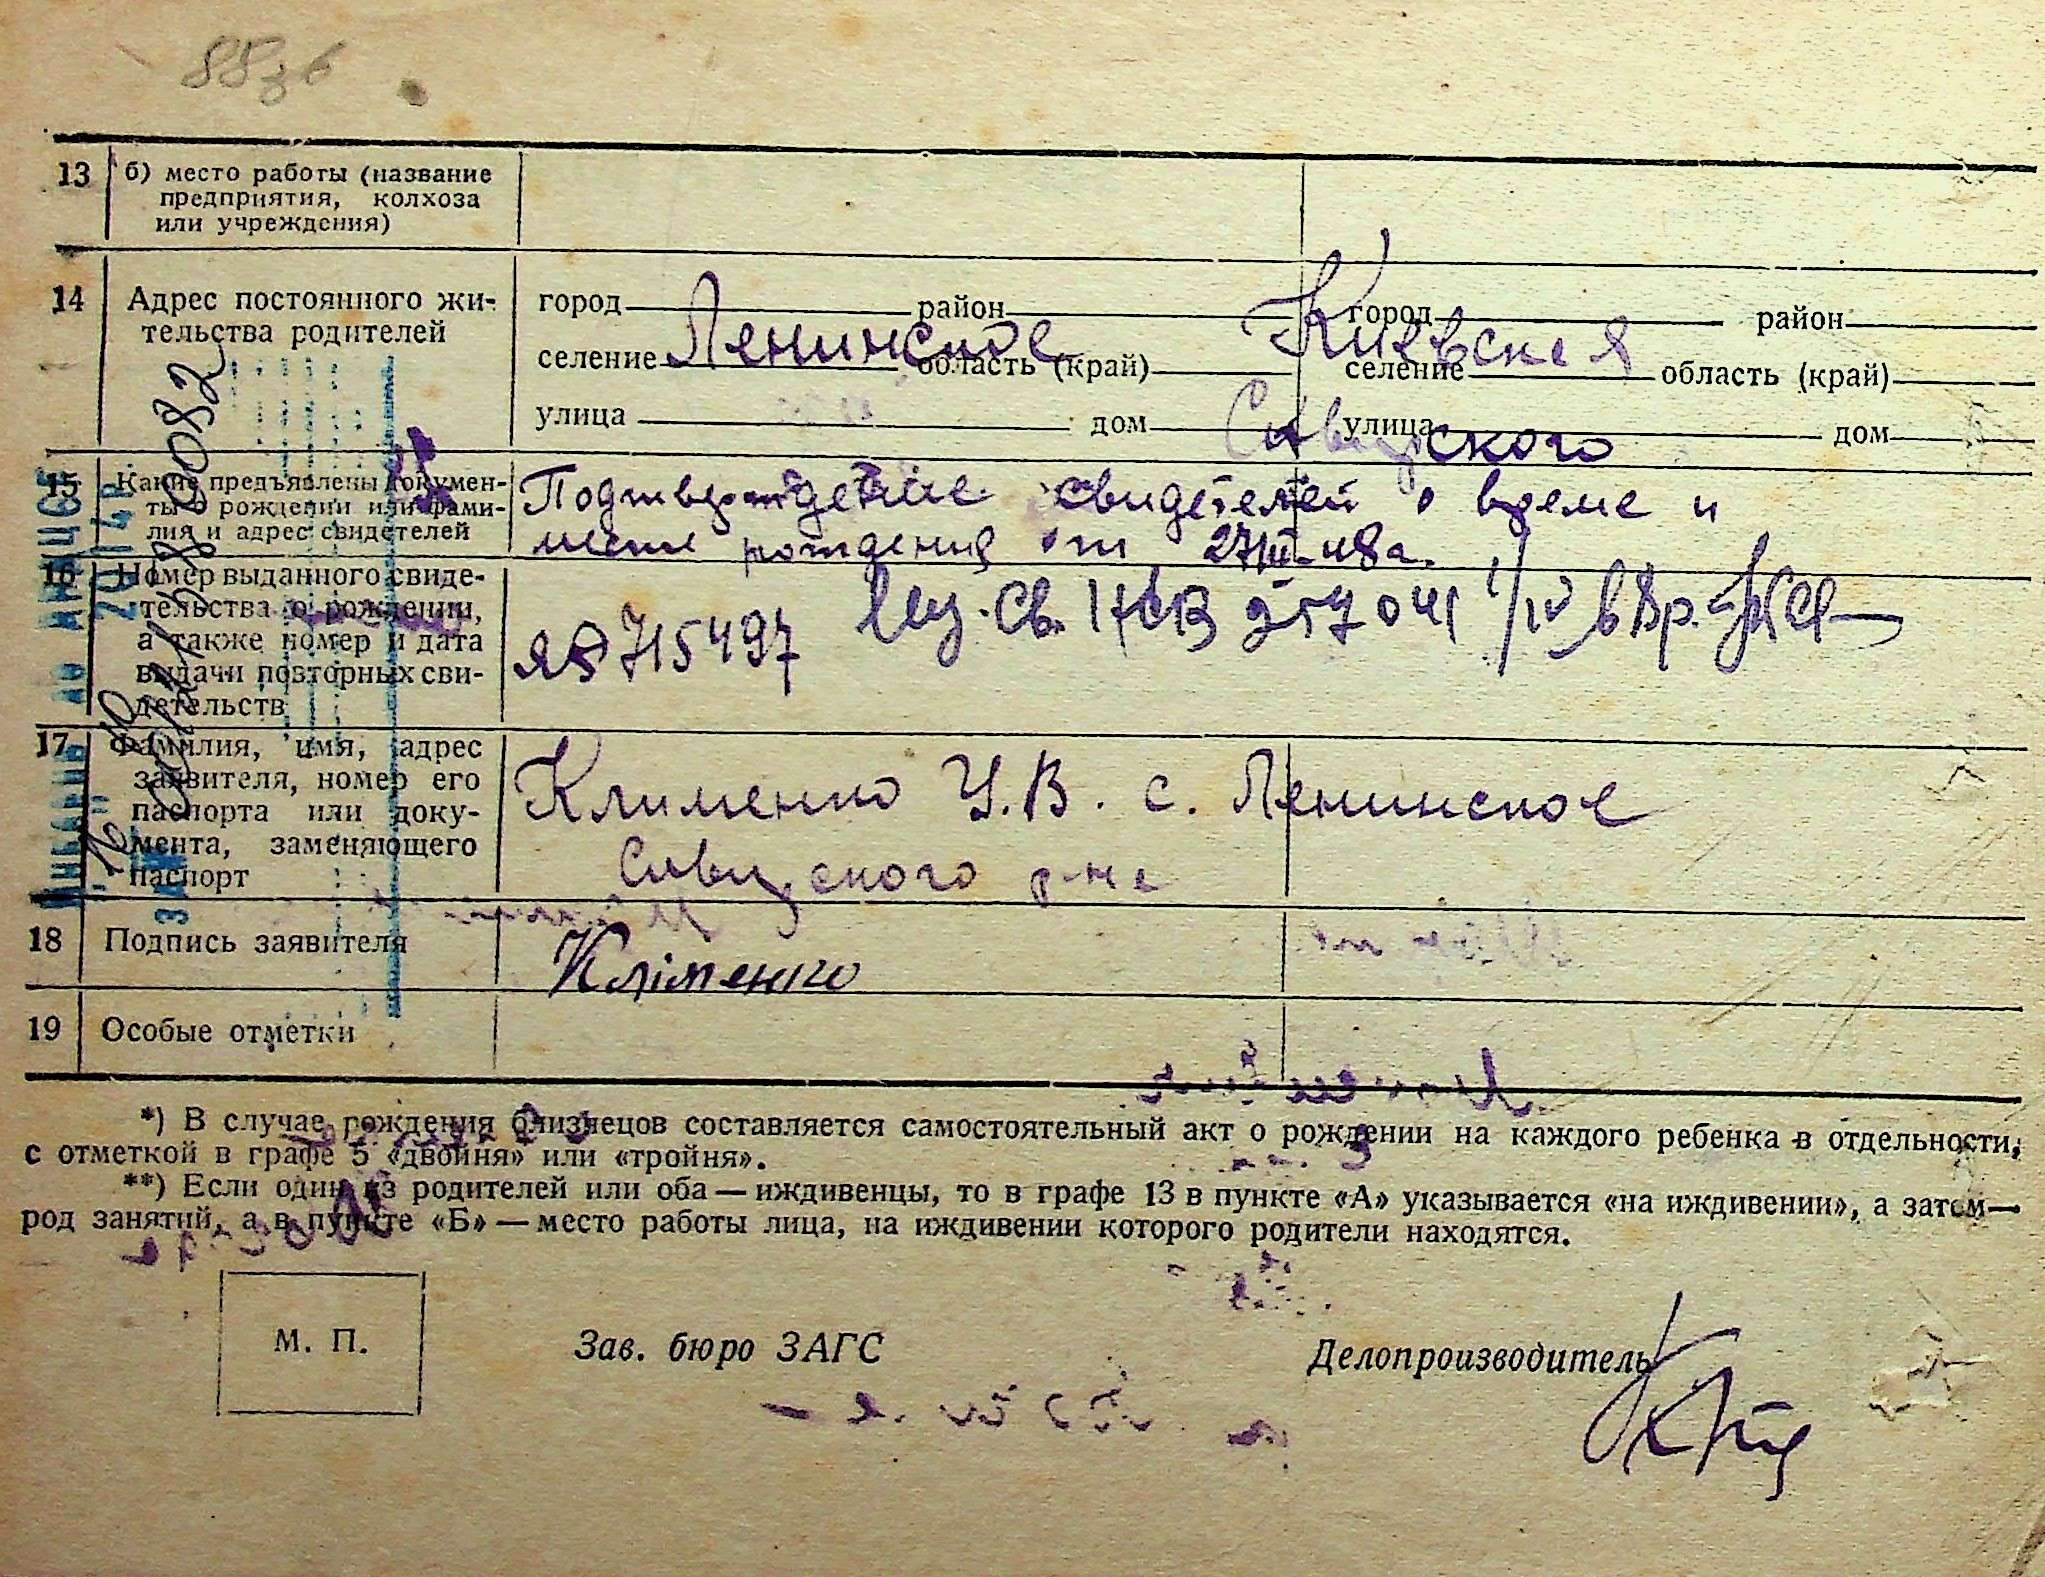 13 б) место работы (название
предприятия, колхоза
или учреждения)
14 Адрес постоянного жи-
тельства родителей
город район
селение Ленинское область (край) Киевская
улица дом
город район
селение область (край)
улица дом
15 Какие предъявлены докумен-
ты о рождении или фами-
лия и адрес свидетелей
Подтверждение свидетелей о време и
месте рождения от 27/III-48г.
16 Номер выданного свиде-
тельства о рождении,
а также номер и дата
выдачи повторных сви-
детельств
715497
17 Фамилия, имя, адрес
заявителя, номер его
паспорта или доку-
мента, заменяющего
паспорт
Клименко У.В. с. Ленинское
р-на
18 Подпись заявителя
Кліменко
19 Особые отметки
*) В случае рождения близнецов составляется самостоятельный акт о рождении на каждого ребенка в отдельности,
с отметкой в графе 5 «двойня» или «тройня».
**) Если один из родителей или оба — иждивенцы, то в графе 13 в пункте «А» указывается «на иждивении», а затем—
род занятий, а в пункте «Б» — место работы лица, на иждивении которого родители находятся.
М. П.
Зав. бюро ЗАГС
Делопроизводитель